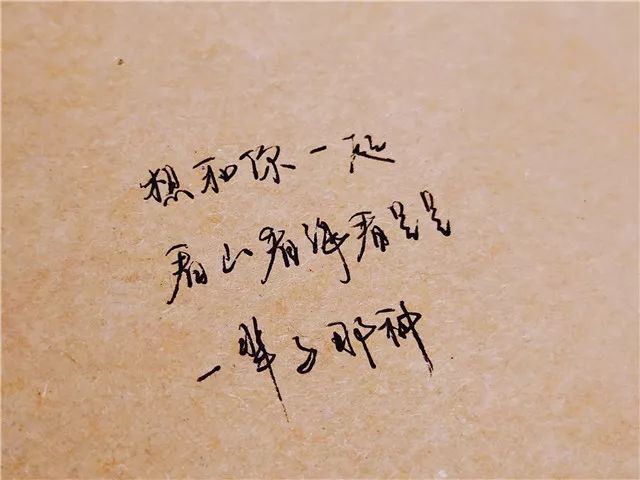 想和你一起
看山看海看星星
一辈子那种